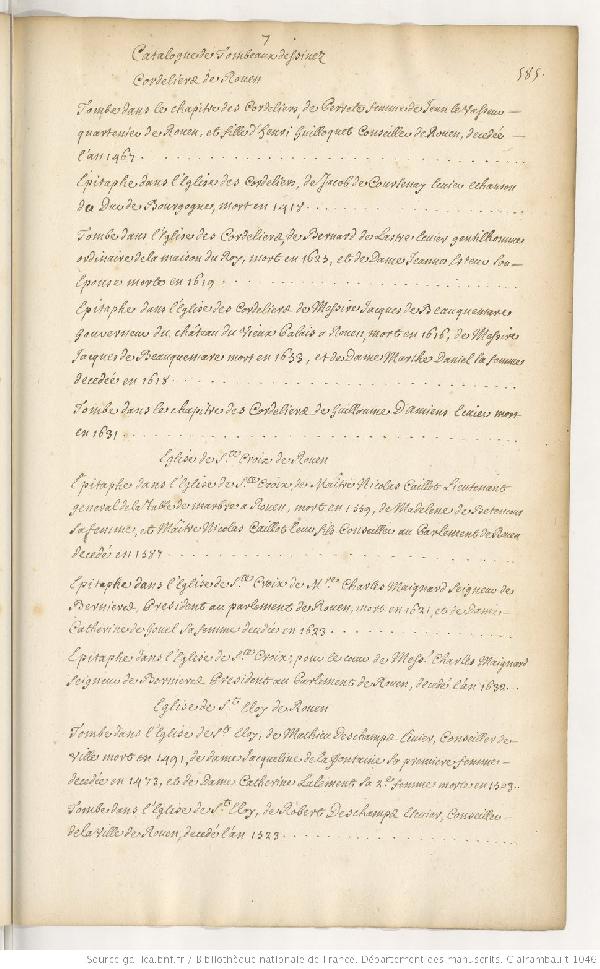 7
585.
Catalogue de Tombeaux dessinez
Cordeliers de Rouen
Tombe dans le chapitre des Cordeliers, de Perrete femme de Jean le Vasseur
quartenier de Rouen, et fille d'Henri Guilloquet Conseiller de Rouen, decedée
l'an 1467
Epitaphe dans l'Eglise des Cordeliers, de Jacob de Courtenay Ecuier echanson
du Duc de Bourgogne, mort en 1418
Tombe dans l'Eglise des Cordeliers de Bernard de Lastre Ecuier gentilhomme
ordinaire de la maison du Roy, mort en 1623, et de Dame Jeanne son
Epouse morte en 1619
Epitaphe dans l'Eglise des Cordeliers de Messire Jacques de Beauquemare
gouverneur du château du Vieux Palais a Rouen, mort en 1616, de Messire
Jacques de Beauquemare mort en 1633, et de Dame Marthe Daniel sa femme
decedée en 1618
Tombe dans le chapitre des Cordeliers de Guillaume D'Amiens Ecuier mort
en 1631
Eglise de S.te Croix de Rouen
Epitaphe dans l'Eglise de S.te Croix de Maître Nicolas Caillot Lieutenant
general de la Table de marbre a Rouen, mort en 1559, de Madelene de
sa femme, et Maître Nicolas Caillot leur fils Conseiller au Parlement de Rouen
decedé en 1587
Epitaphe dans l'Eglise de S.te Croix de M.re Charles Maignard Seigneur de
Bernieres, President au parlement de Rouen, mort en 1621, et de Dame
Catherine de sa femme decedée en 1623
Epitaphe dans l'Eglise de S.te Croix, pour le coeur de Mess.e Charles Maignard
Seigneur de Bernieres President au Parlement de Rouen, decedé l'an 1632
Eglise de S.t Eloy de Rouen
Tombe dans l'Eglise de S.t Eloy, de Mathieu Deschamps Ecuier, Conseiller de
Ville mort en 1491, de dame Jacqueline de la Fontaine sa premiere femme
decedée en 1473, et de Dame Catherine Lalement sa 2.e femme morte en 1503
Tombe dans l'Eglise de S.t Eloy, de Robert Deschamps Ecuier, Conseiller
de la Ville de Rouen, decedé l'an 1523
Source gallica.bnf.fr / Bibliothèque nationale de France. Département des manuscrits. Clairambault 1046